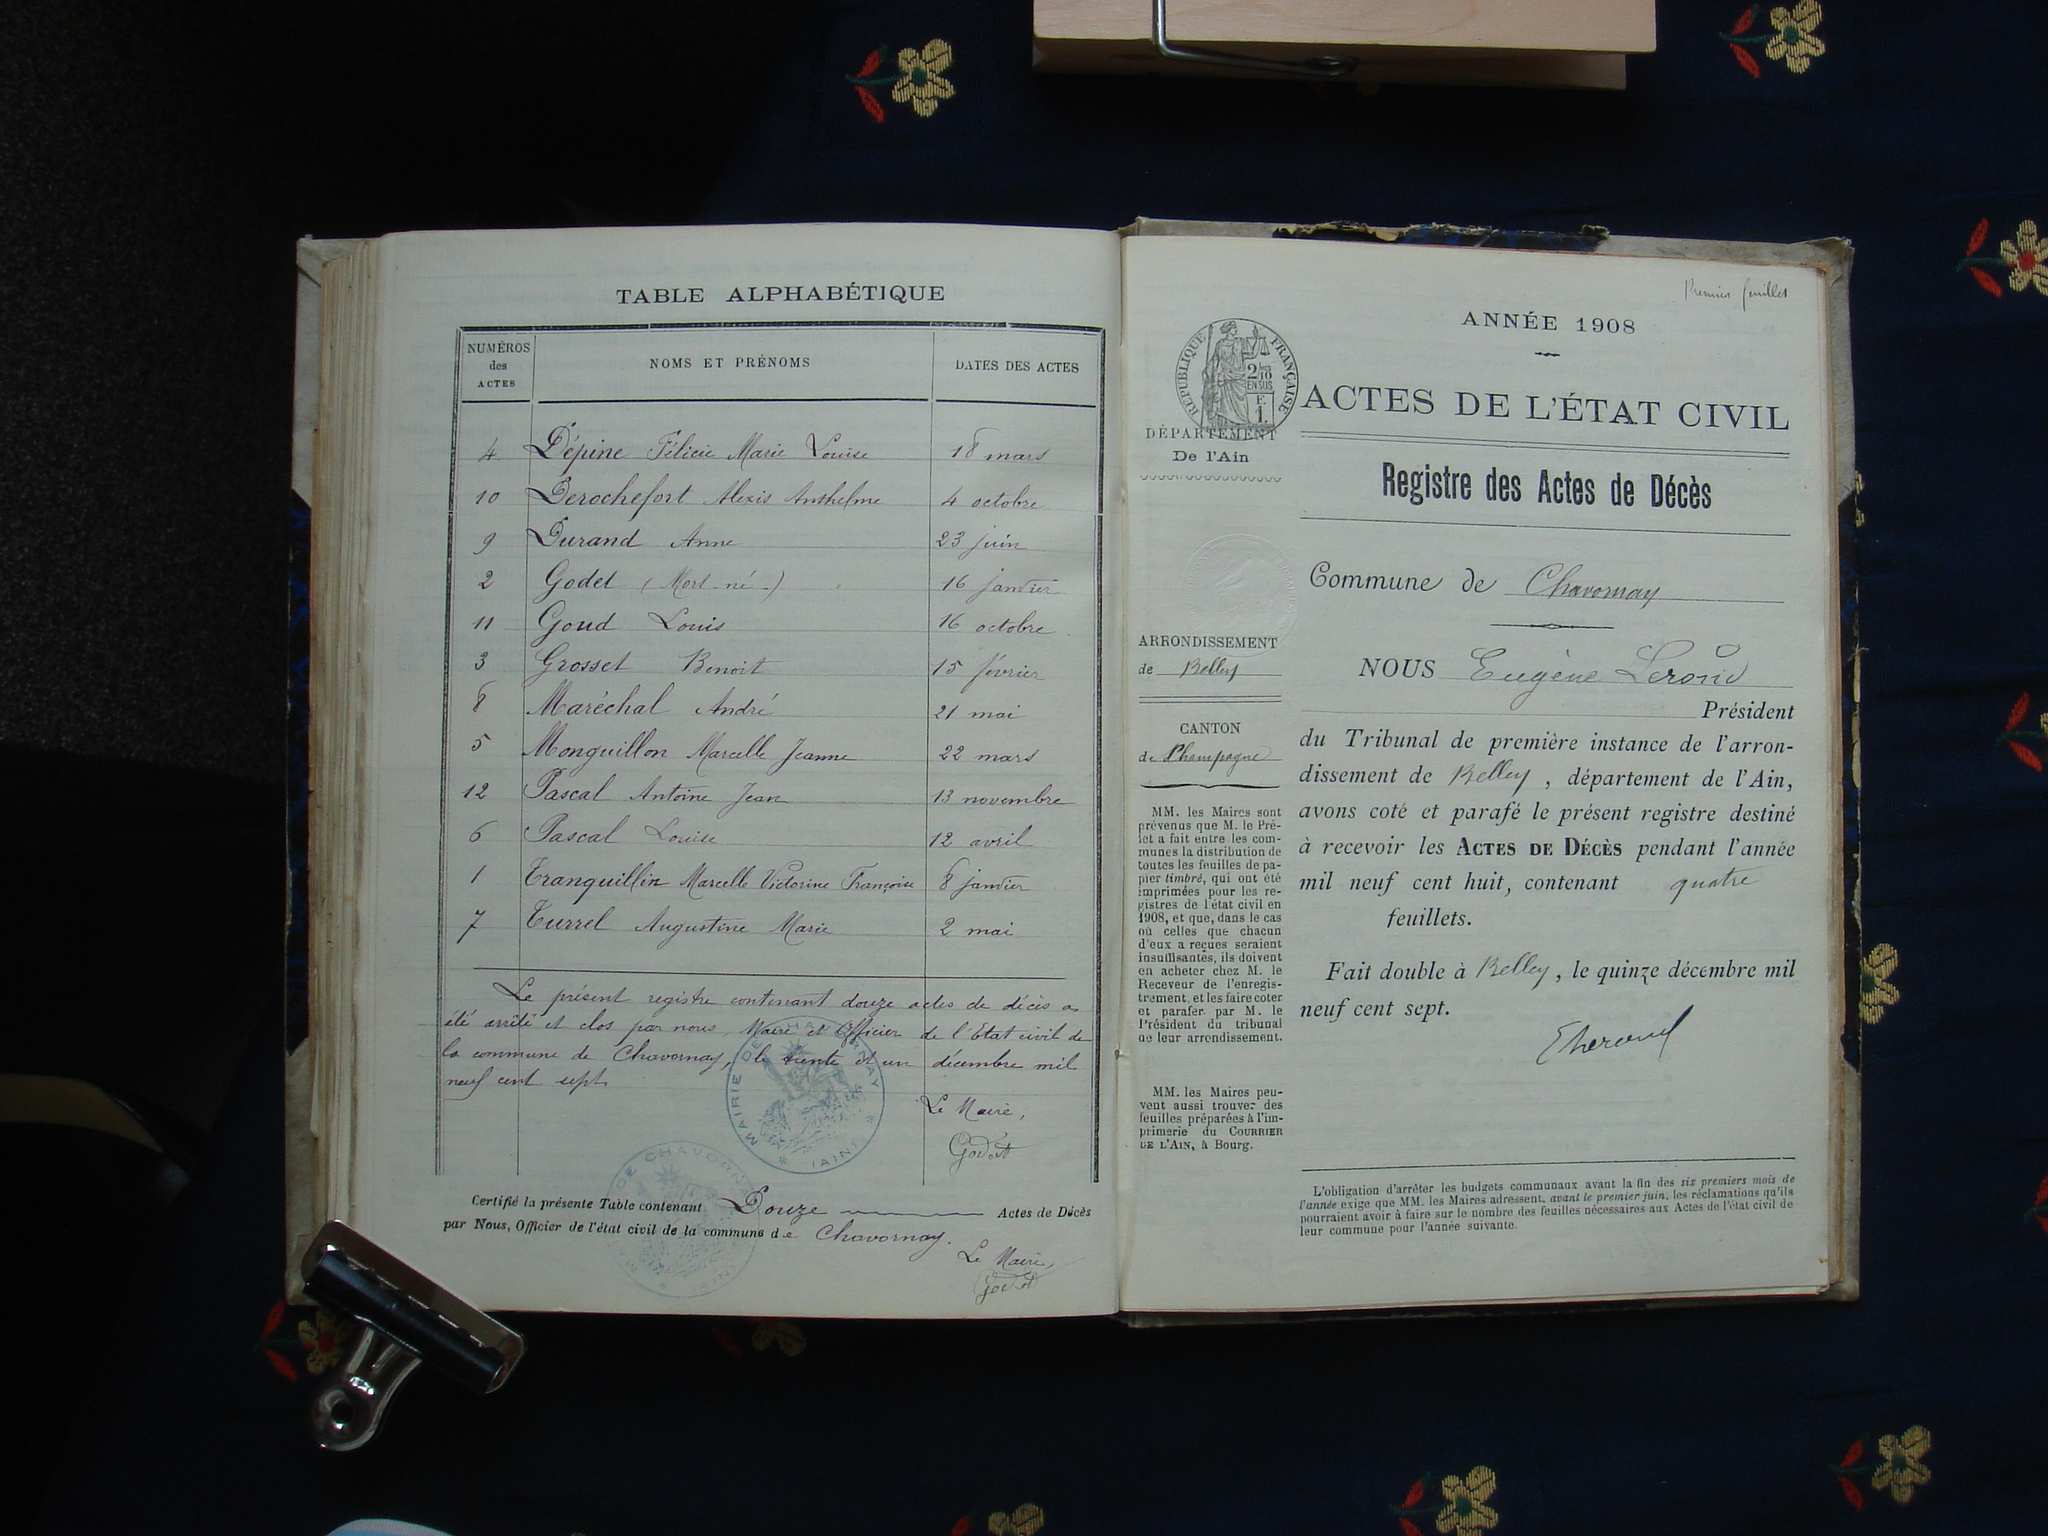 TABLE ALPHABÉTIQUE
NUMÉROS
des
ACTES
NOMS ET PRÉNOMS
DATES DES ACTES
4 Dépine Félicie Marie Louise 18 mars
10 Derochefort Alexis Anthelme 4 octobre
9 Durand Anne 23 juin
2 Godet (Mort-né-) 16 janvier
11 Goud Louis 16 octobre
3 Grosset Benoit 15 février
8 Maréchal André 21 mai
5 Monguillon Marcelle Jeanne 22 mars
12 Pascal Antoine Jean 13 novembre
6 Pascal Louise 12 avril
1 Tranquillin Marcelle Victorine Françoise 8 janvier
7 Turrel Augustine Marie 2 mai
Le présent registre contenant douze actes de décès a
été arrêté et clos par nous, Maire et Officier de l'Etat civil de
la commune de Chavornay, le trente et un décembre mil
neuf cent sept.
Le Maire,
Godet
MAIRIE DE CHAVORNAY
(AIN)
Certifié la présente Table contenant Douze Actes de Décès
par Nous, Officier de l'état civil de la commune de Chavornay.
Le Maire,
Godet
DE CHAVORNAY
Premier feuillet
ANNÉE 1908
ACTES DE L'ÉTAT CIVIL
RÉPUBLIQUE FRANÇAISE
2/10
EN SUS
F.
1
DÉPARTEMENT
De l'Ain
Registre des Actes de Décès
Commune de Chavornay
ARRONDISSEMENT
de Belley
CANTON
de Champagne
MM. les Maires sont
prévenus que M. le Pré-
fet a fait entre les com-
munes la distribution de
toutes les feuilles de pa-
pier timbré, qui ont été
imprimées pour les re-
gistres de l'état civil en
1908, et que, dans le cas
où celles que chacun
d'eux a reçues seraient
insuffisantes, ils doivent
en acheter chez M. le
Receveur de l'enregis-
trement, et les faire coter
et parafer par M. le
Président du tribunal
de leur arrondissement.
MM. les Maires peu-
vent aussi trouver des
feuilles préparées à l'im-
primerie du COURRIER
DE L'AIN, à Bourg.
NOUS Eugène
Président
du Tribunal de première instance de l'arron-
dissement de Belley, département de l'Ain,
avons coté et parafé le présent registre destiné
à recevoir les ACTES DE DÉCÈS pendant l'année
mil neuf cent huit, contenant quatre
feuillets.
Fait double à Belley, le quinze décembre mil
neuf cent sept.
L'obligation d'arrêter les budgets communaux avant la fin des six premiers mois de
l'année exige que MM. les Maires adressent, avant le premier juin, les réclamations qu'ils
pourraient avoir à faire sur le nombre des feuilles nécessaires aux Actes de l'état civil de
leur commune pour l'année suivante.